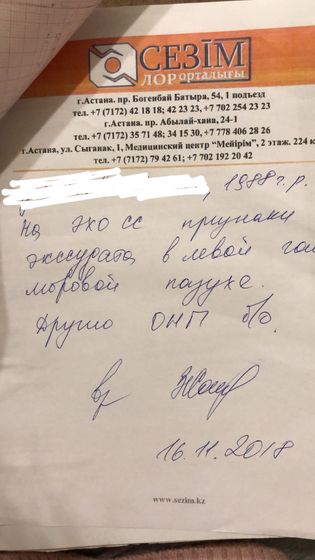 СЕЗІМ
ЛОР орталығы
г.Астана. пр. Богенбай Батыра, 54, 1 подъезд
тел. +7 (7172) 42 18 18; 42 23 23, +7 702 254 23 23
г.Астана. пр. Абылай-хана, 24-1
тел. +7 (7172) 35 71 48; 34 15 30, +7 778 406 28 26
г.Астана, ул. Сыганак, 1, Медицинский центр "Мейірім", 2 этаж. 224 к
тел. +7 (7172) 79 42 61; +7 702 192 20 42
, 1988 г.р.
На ЭХО СС признаки
экссудата в левой гай
моровой пазухе.
Другие ОНП б/о.
вр
16.11.2018
www.sezim.kz